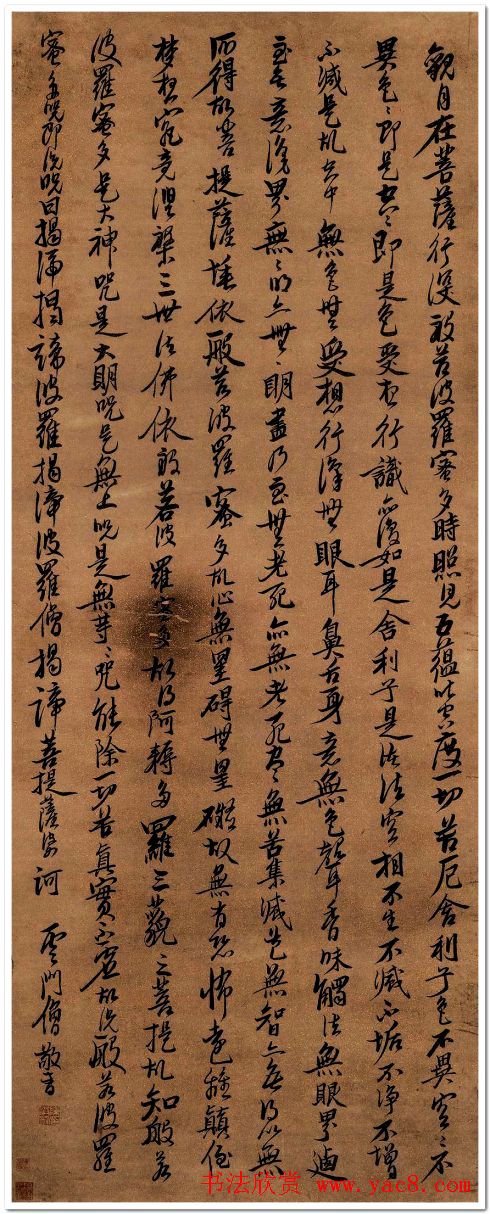 觀自在菩薩行深般若波羅蜜多時照見五蘊皆空度一切苦厄舍利子色不異空々不
異色々即是空々即是色受想行識亦復如是舍利子是諸法空相不生不滅不垢不淨不增
不減是故空中無色無受想行識無眼耳鼻舌身意無色聲香味觸法無眼界迺
至無意識界無々明亦無々明盡乃至無老死亦無老死盡無苦集滅道無智亦無得以無
所得故菩提薩埵依般若波羅蜜多故心無罣礙無罣礙故無有恐怖遠離顛倒
夢想究竟涅槃三世諸佛依般若波羅蜜多故得阿耨多羅三藐三菩提故知般若
波羅蜜多是大神咒是大明咒是無上咒是無等々咒能除一切苦真實不虛故說般若波羅
蜜多咒即說咒曰揭諦揭諦波羅揭諦波羅僧揭諦菩提薩婆訶 雲門僧敬書
书法欣赏 www.yac8.com